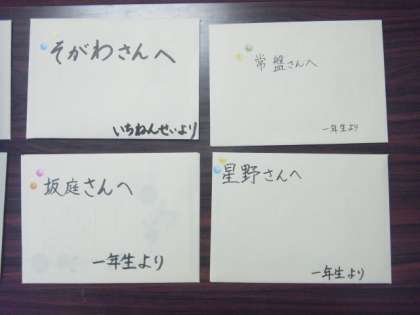 そがわさんへ
いちねんせいより
常盤さんへ
一年生より
坂庭さんへ
一年生より
星野さんへ
一年生より